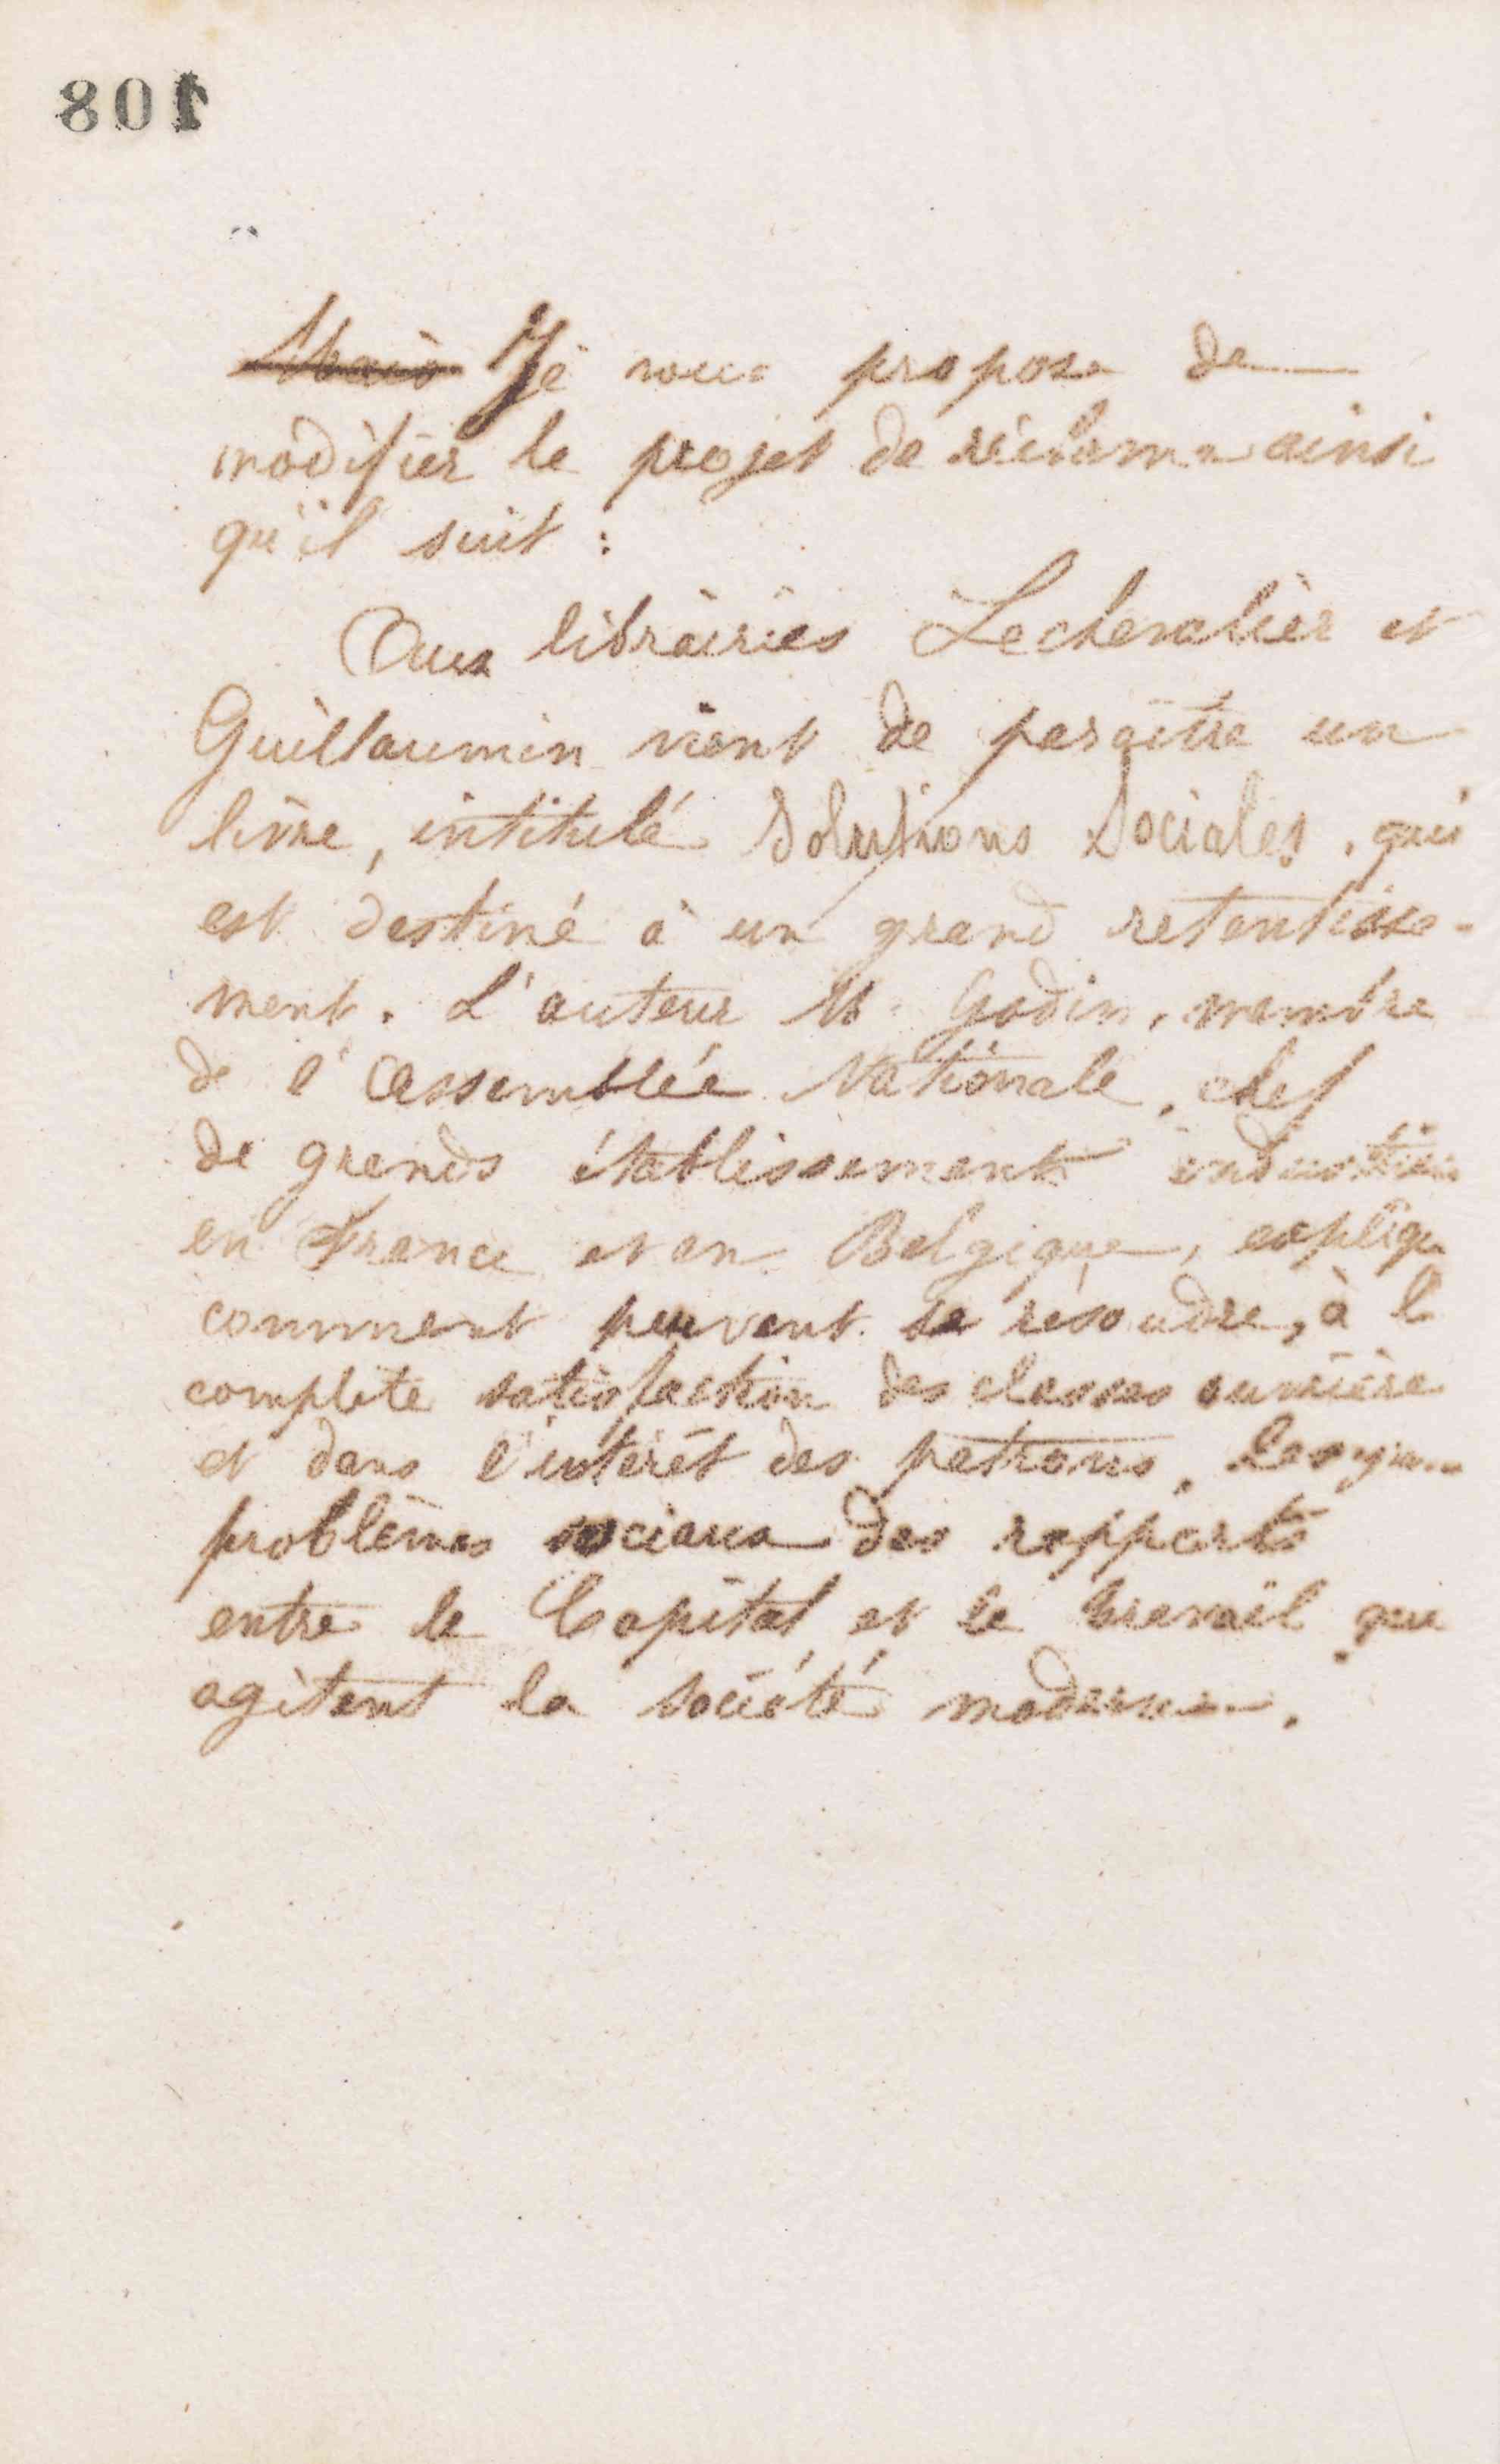 108
~~Mais~~ Je vous propose de
modifier le projet de réclame ainsi
qu'il suit :
Aux librairies Lechevalier et
Guillaumin vient de paraître un
livre, intitulé Solutions Sociales, qui
est destiné à un grand retentisse-
ment. L'auteur M. Godin, membre
de l'Assemblée Nationale, chef
de grands établissements
en France et en Belgique, explique
comment peuvent se résoudre, à l
complète satisfaction des classes ouvrière
et dans l'intérêt des patrons, les
problèmes sociaux des rapports
entre le Capital et le travail qui
agitent la société moderne.